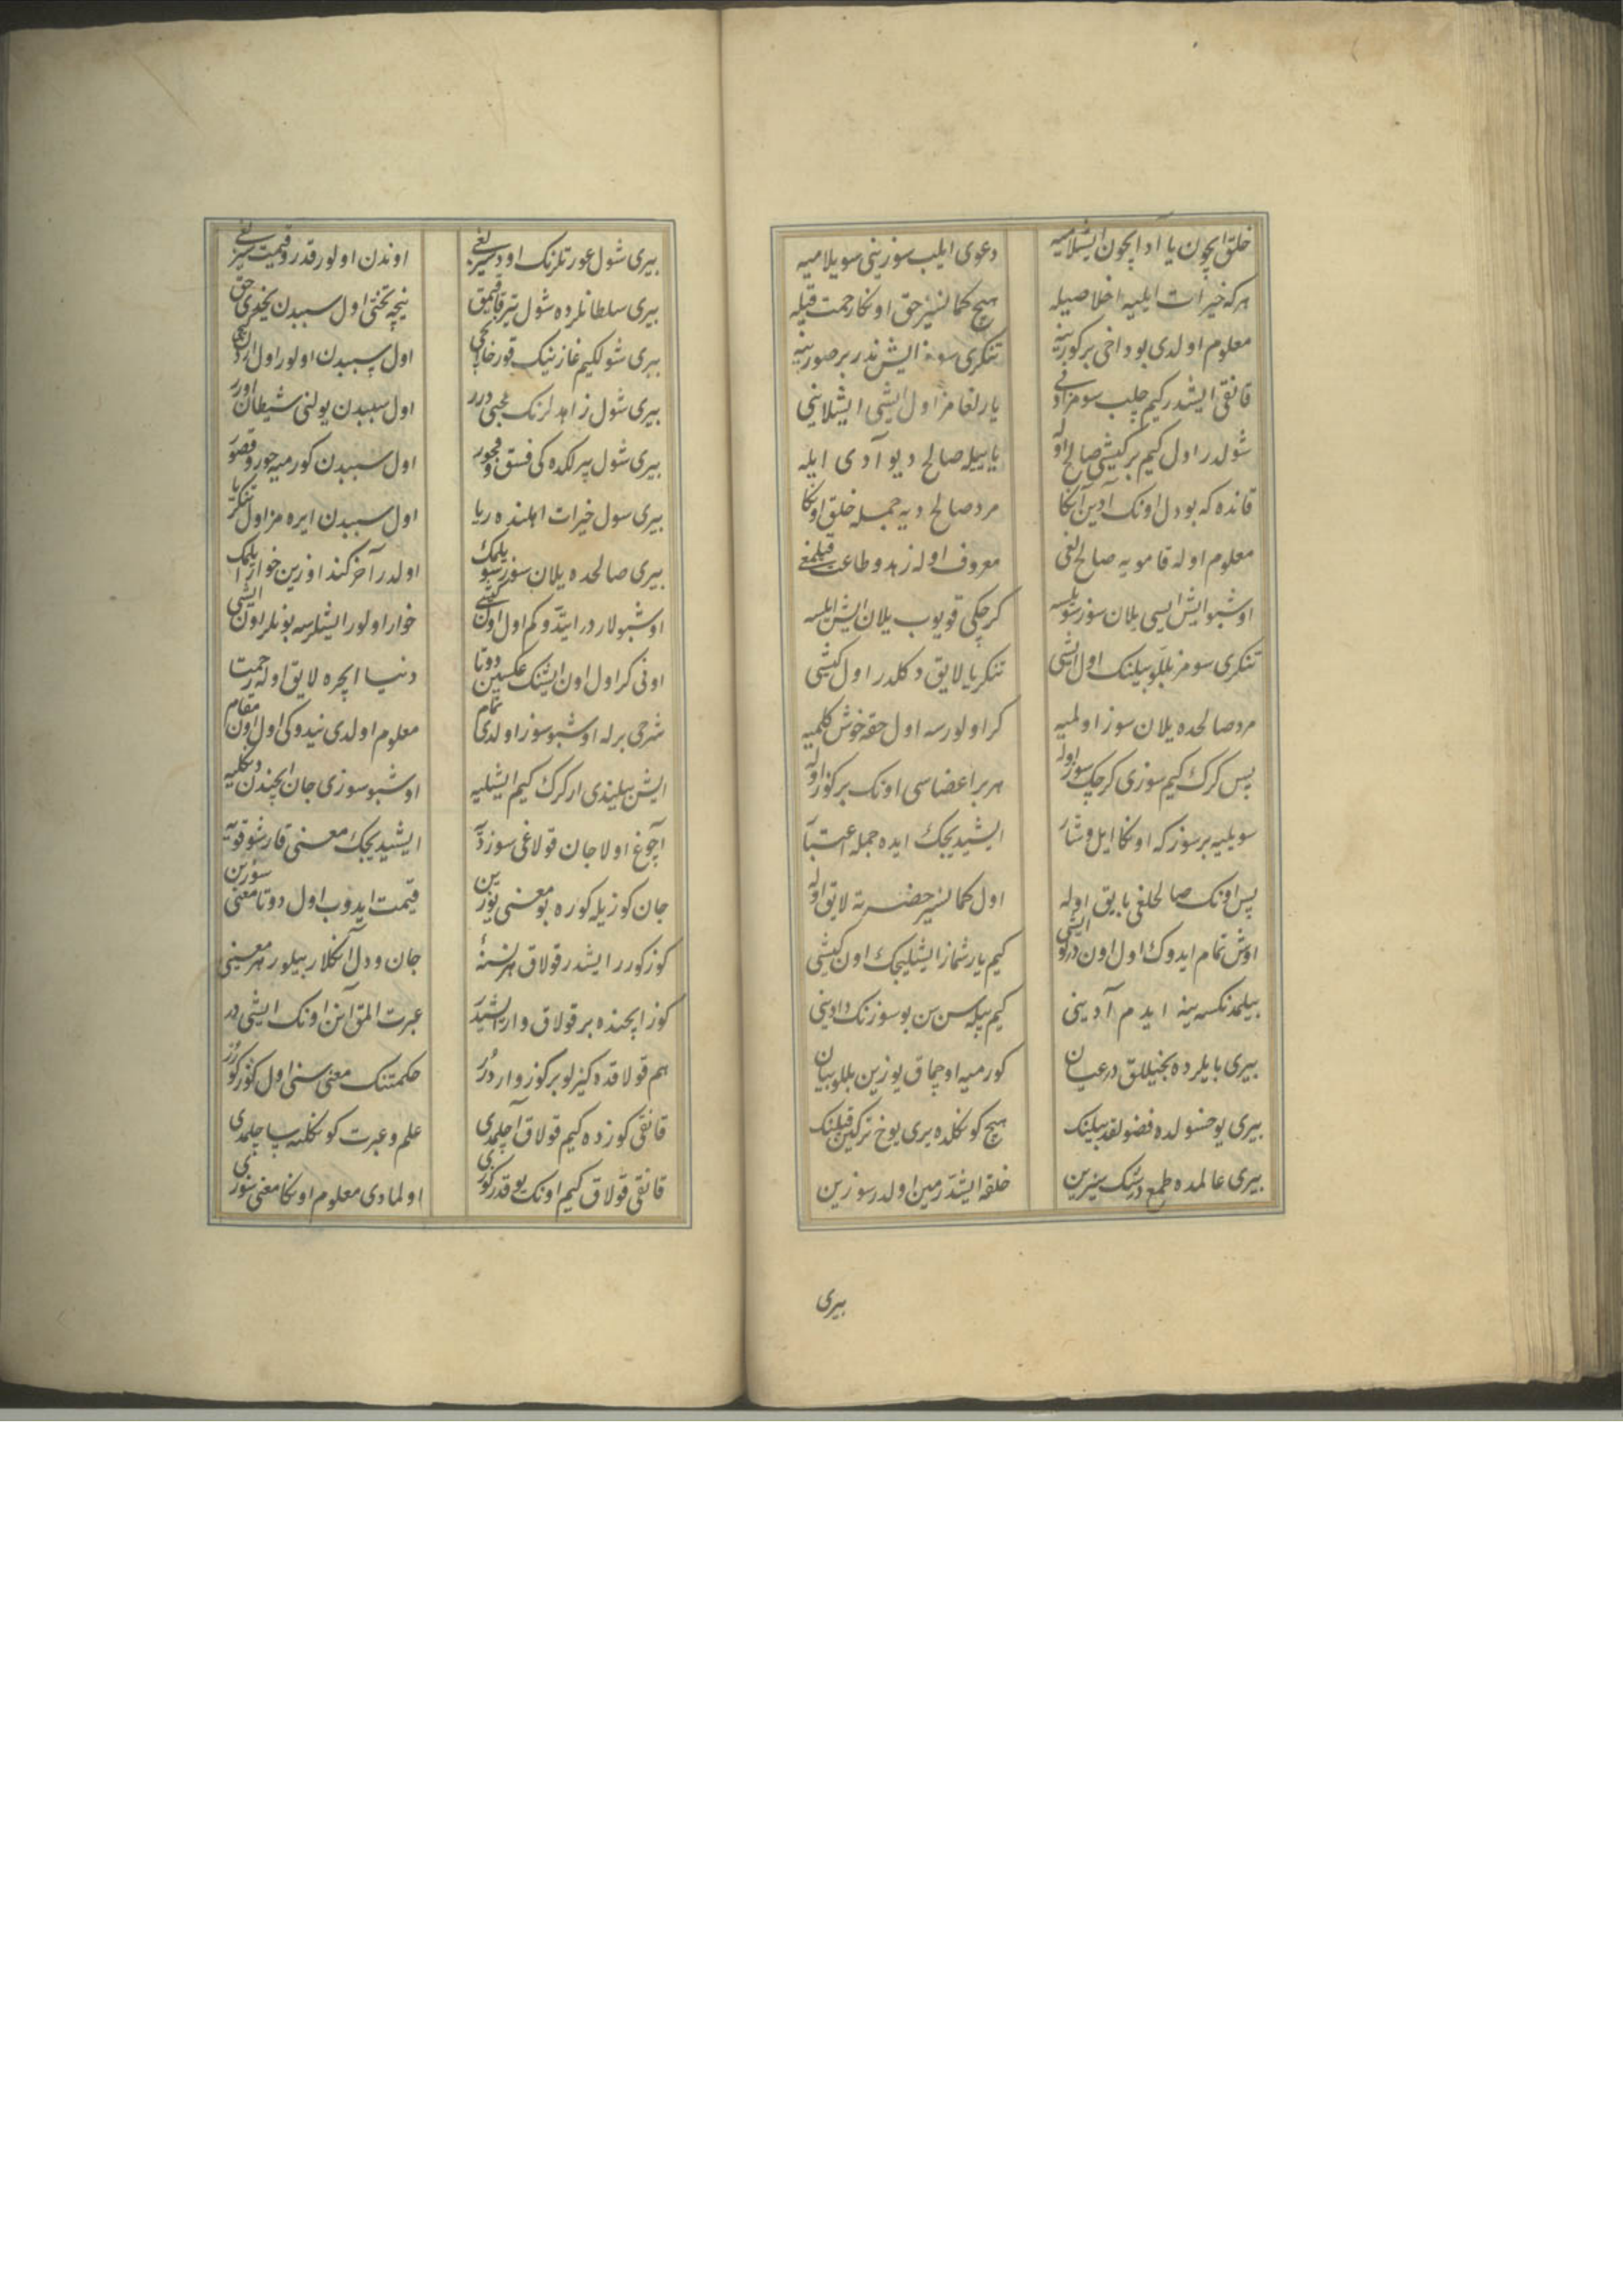 خلق ایچون یا آد ایچون ایشلامیه دعوی ایلیب سوزینی سویلامیه
هرکه خیرات ایلیه اخلاصیله هیچ کمانسیز حق اونکا رحمت قیله
معلوم اولدی بو داخی بر کورینه تنکری سومز ایش ندر بر صورینه
قانقی ایشدر کیم چلب سومز آنی یارلغامز اول ایشی ایشلاینی
شولدر اول کیم بر کیشی صالح اوله یا بیله صالح دیو آدی ایله
قانده که بو دل اونک آدین آنکا مرد صالح دیه جمله خلق اونکا
معلوم اوله قامویه صالح لغی معروف اوله زهد و طاعت قیلمغی
اوشبو ایش ایسی یلان سوز سویلسه کرچکی قویوب یلان ایش ایلسه
تنکری سومز بللو بیلنک اول ایشی تنکریا لایق دکلدر اول کیشی
مرد صالحده یلان سوز اولمیه کر اولورسه اول حقه خوش کلمیه
پس کرک کیم سوزی کرچک سوز اوله هر بر اعضاسی اونک بر کوز اوله
سویلیه بر سوز که اونکا ایل و شار ایشیدیجک ایده جمله اعتبار
پس اونک صالحلغی بایق اوله اول کمانسیز حضرته لایق اوله
اوش تمام ایدوک اول اون درلو ایشی کیم یارشماز ایشلیجک اون کیشی
بیلمدنکسه ینه ایدم آدینی کیم بیله سن سن بو سوزنک دادینی
بیری بایلرده بخیللق در عیان کورمیه اوچماق یوزین بللو بیان
بیری یوخسولده فضولقدر بیلنک هیچ کونکلده یری یوخ ترکین قیلنک
بیری عالمده طمع درنک سیزین خلقه ایشدرمین اولدر سوزین
بیری
بیری شول عورتلرنک اودسیزلغی اوندن اولور قدر و قیمت سیزلغی
بیری سلطانلرده شول تیز قاقیمق نیچه تختی اول سببدن یخدی حق
بیری شولکیم غازینک قورخاقلغی اول سببدن اولور اول
بیری شول زاهدلرنک عجبی درر اول سببدن یولنی شیطان اورر
بیری شول پیرلکده کی فسق و فجور اول سببدن کورمیه حور و قصور
بیری سول خیرات اهلنده ریا اول سببدن ایره مز اول تنکریا
بیری صالحده یلان سوز سویلمک اولدر آخر کندوزین خوار ایلمک
اوشبولاردر ایتدوکم اول اون کیشی خوار اولور ایشلرسه بونلر اون ایشی
اونی کر اول اون ایشنک عکسین دوتا دنیا ایچره لایق اوله رحمتا
شرحی برله اوشبو سوز اولدی تمام معلوم اولدی نیدوکی اول اون مقام
ایش بیلیندی ار کرک کیم ایشلیه اوشبو سوزی جان ایچندن دنکلیه
آچوغ اولا جان قولاغی سوز دیه ایشیدیجک معنی قارشو قویه
جان کوزیله کوره بو معنی یوزین قیمت ایدوب اول دوتا معنی سوزین
کوز کورر ایشدر قولاق هر نسنه جان و دل آنکلار بیلور هر معنینی
کوز ایچنده بر قولاق وار ایشیدر عبرت المق آنن اونک ایشی در
هم قولاقده کیزلو بر کوز وار درر حکمتنک معنی سنی اول کوز کورر
قانقی کوزده کیم قولاق آچلمدی علم و عبرت کونکلنه ساچلمدی
قانقی قولاق کیم اونک یوقدر کوزی اولمادی معلوم اونکا معنی سوزی